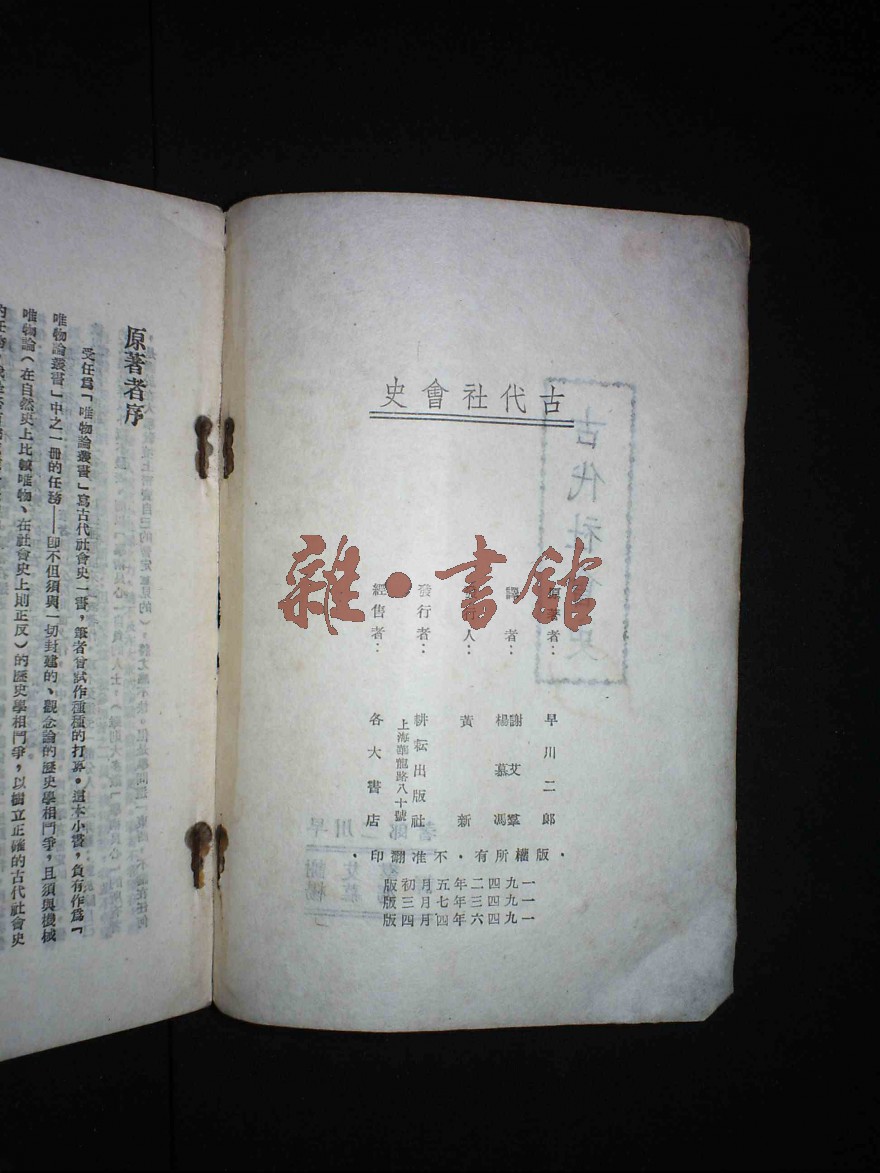 古代社會史
原著者：早川二郎
譯者：謝艾羣
楊慕馮
發行人：黃新
發行者：耕耘出版社
上海華龍路八十號
經售者：各大書店
·版權所有·不准翻印·
一九四二年五月初版
一九四三年七月三版
一九四六年四月四版
雜·書館
原著者序
受任爲「唯物論叢書」寫古代社會史一書，筆者曾試作種種的打算。這本小書，負有作爲「
唯物論叢書」中之一冊的任務——卽不但須與一切封建的、觀念論的歷史學相鬥爭，且須與機械
唯物論（在自然史上比較唯物、在社會史上則正反）的歷史學相鬥爭，以樹立正確的古代社會史